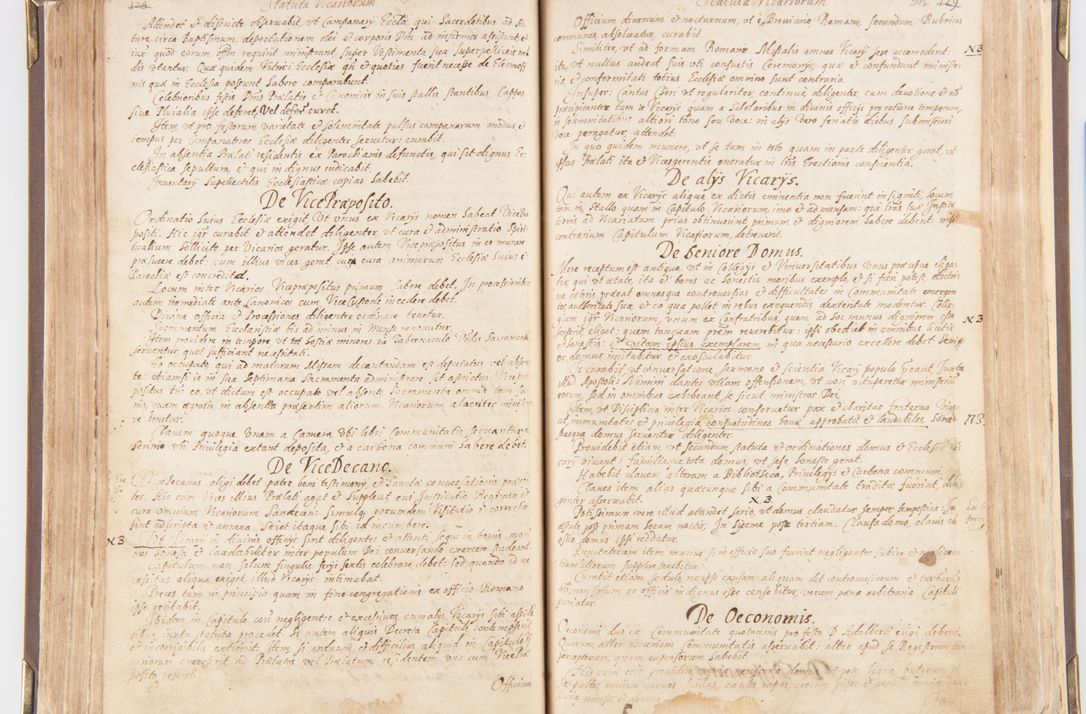 128 Statuta Vicariorum
Attendet et districte observabit, ut Campanarij Ecclae, qui Sacerdotibus ad
ture circa Baptismum, deportationem olei et corporis Dni ad infirmos assistunt
ius quod eorum offm requirit ministrant, super Vestimenta sua Superpelliceis in
dis utantur. Quae quidem Vitrici Ecclesiae qn et quoties fuerit necesse de Elemosi
nis quae in Ecclesia possunt habere comparabunt.
Celebrioribus festis Dnis Praelatis et Canonicis in suis stallis stantibus Cappas
sive Pluvialia ipse deferet, vel deferri curet.
Item ut pro festorum varietate et solemnitate pulsus campanarum modus et
tempus per Campanatores Ecclesiae diligenter servetur: curabit.
In absentia Praelati residentis ex Parochianis defunctis, qui sit dignus Ec
clesiastica sepultura, et qui indignus indicabit.
Inventarij Supellectilis Ecclesiasticae copias habebit.
De VicePraeposito.
Ordinatio huius Ecclesiae exigit, ut unus ex Vicarijs nomen habeat VicePrae
positi. Hic igr curabit et attendet diligenter, ut cura et administratio Spiri
tualium sollicite per Vicarios geratur. Ipse autem Vicepraepositus in eo munere
praelucere debet: cum illius vices gerat, cui cura animarum Ecclesiae huius et
Parochiae est concredita.
Locum inter Vicarios Vicepraepositus primum habere debet. In processionibus
autem immediate ante Canonicos cum ViceCustode incedere debet.
Divina officia et Processiones diligenter ordinare tenetur.
Sacramentum Eucharistiae bis ad minus in Mense renovatur.
Item providere in tempore ut tot hostiae minores in Tabernaculo Vnlis Sacramenti
serventur quot sufficiant necessitati.
Eo occupato, qui ad maturam Missam decantandam est deputatus vel absen
te: etiamsi is in sua Septimana Sacramenta administrare sit astrictus. Vicepraepo
positus tn eo, ut dictum est occupato vel absente Sacramenta omnia tam sa
nis, quam aegrotis in absentia praesertim aliorum Vicariorum alacriter ministra
re tenetur.
Clavem quoque unam a Camera ubi libri Communitatis servantur a
Scrinio ubi Privilegia extant deposita, et a carbona communi habere debet.
De ViceDecano.
ViceDecanus eligi debet pater boni testimonij, et Sanctae conversationis prae
ter. Hic cum Vices illius Praelati agat et Suppleat cuius Institutio Regimen et
cura omnium Vicariorum Sandecen simulq. eorundem Visitatio et correctio
sint adscripta et annexa. Sciet itaque sibi id incumbere.
X3 Ut Vicarij in divinis officijs sint diligentes et attenti, seque in bonis mori
bus honeste et laudabiliter inter populum Dei conversando exercere studeant.
Capitulum non solum singulis ferijs sextis celebrare debet: sed quando id ne
cessitas aliqua exiget illud Vicarijs intimabat.
Preces tam in principio quam in fine congregationis ex officio Romano
ipse recitabit.
Ibidem in Capitulo, con negligentes et excessivos cum alijs Vicarijs sibi assisten
tibus iuxta statuta procedet. Si autem aliquis Decreta Capituli contempserit
et incorrigibilis extiterit: item si arduum et difficilius aliquid in Capitulo
canorum emerserit tn Praelatus vel Praelatum residentem una cum VicePrae
posito referet.
Officium

Statuta Vicariorum 129
Officium diurnum et nocturnum, ut e Breviario Romano, secundum Rubricas
communes, absolvatur, curabit.
Similiter, ut ad formam Romani Missalis omnes Vicarij sese accomodent X3
ita, ut nullus audeat suis uti consuetis Ceremonijs, quae et confundunt ministe
ria et conformitati totius Ecclesiae omnino sunt contraria.
Insuper: Cantus Chori ut regulariter, continue diligenter, cum devotione et no
praecipitanter tam a Vicarijs quam a Scholaribus in divinis officijs pro ratione temporum,
in solemnitatibus altiori tono seu voce: in alijs vero feriatis diebus submissiori
voce peragatur, attendet.
In quo quidem munere, ut se tam in toto quam in parte diligenter gerat, ut
ipsius Praelati ita et Vicesgerentis oneratur in bris Erectionis conscientia.
De alijs Vicarijs.
Qui autem ex Vicarijs aliqua ex dictis eminentia non fuerint insigniti, locum
tam in stallo quam in Capitulo Vicariorum, imo et ad mensam: qui bris suae Institu
tionis ad Vicariatum prius obtinuerint primum et digniorem habere debent nisi
contrarium Capitulum Vicariorum decreverit.
De Seniore Domus.
More receptum est antiquo, ut in Collegijs et Universitatibus unus praesit a
tis, qui ut aetate, ita et bonis ac honestis moribus exemplo, et si fieri potest electio
na caeteris praeeat, omnesque controversias et difficultates in Communitate emergen
tes authoritate sua, et ea qua pollet in rebus exequendis dexteritate moderetur. Colle
gium igr Vicariorum, unum ex Confratribus quem ad hoc munus digniorem esse X3
senserit, eliget: quem tanquam prem reverebitur: ipsi obediet in omnibus licitis
et honestis: et vitam ipsius exemplarem in qua necessario excellere debet Seni
or domus imitabitur et exosculabitur.
Is curabit, ut conversatione, sermone et scientia Vicarij populo luceant, Juxta
illud Apostoli Nemini dantes ullam offensionem, ut non vituperetur ministerium
eorum, sed in omnibus exhibeant se sicut ministros Dei.
Item, ut Disciplina inter Vicarios conservetur, pax et charitas fraterna Vige
at immunitates et privilegia consuetudines bonae approbatae et laudabiles, hones NB
tasque domus servantur diligenter.
Providebit etiam, ut secundum statuta et ordinationes domus et Ecclesiae Vi
carij vivant: familiaque tota domus, ut sese honeste gerat.
Habebit clavem alteram a Bibliotheca, Privilegijs et Carbona communi.
Claves item alias quascunque sibi a Communitate traditae fuerint, dili
genter asservabit.
X3
Potissimum vero illud attendet serio, ut domus claudatur semper tempestive. In
aestate post primam horam noctis; In hyeme post tertiam. Clausa domo, claves ab
ostio domus ipse reddatur.
Punctatorum item munus si in officio suo fuerint negligentes subire et negligen
tiam illorum supplere tenebitur.
Curabit etiam sedulo, ne ipse causam aliquam det controversiarum et turbarum
ab, non solum eo officio indignus esse censebitur, verum paena arbitraria Capituli
punietur.
De Oeconomis.
Oeconomi duo ex Communitate quotannis pro festo D. Adalberti eligi debent.
Quorum alter pecuniam Communitatis asservabit: alter apud se Regestrum tam
perceptorum, quam expensorum habebit.